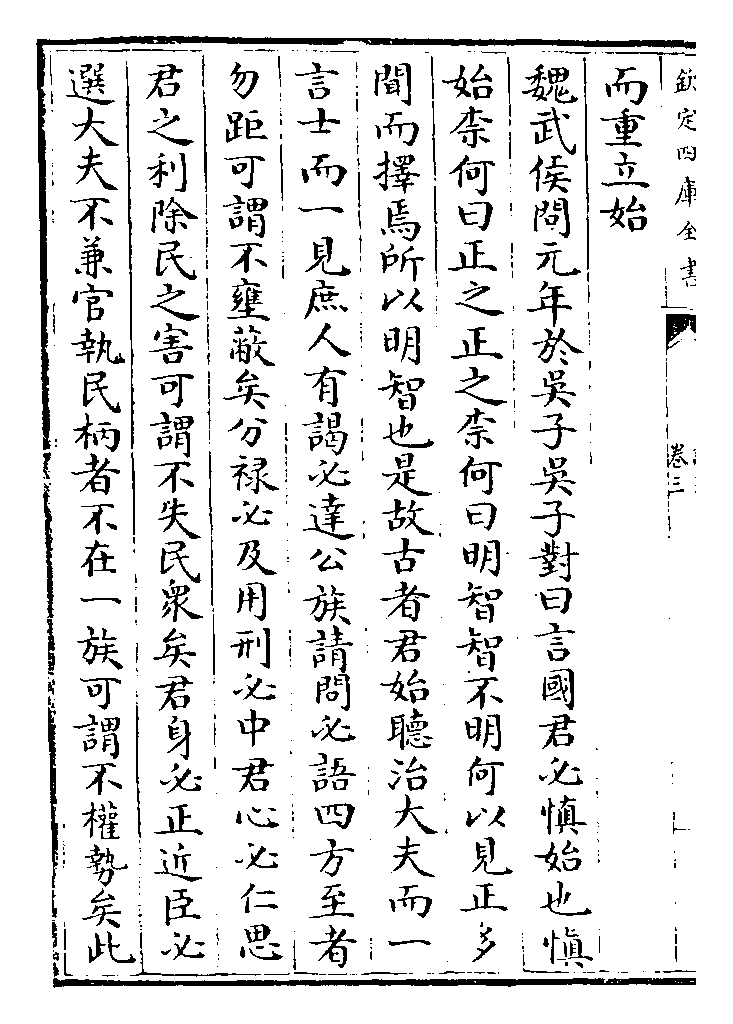 欽定四庫全書
卷三
而重立始
魏武侯問元年於吳子吳子對曰言國君必慎始也慎
始柰何曰正之正之柰何曰明智智不明何以見正多
聞而擇焉所以明智也是故古者君始聽治大夫而一
言士而一見庶人有謁必達公族請問必語四方至者
勿距可謂不壅蔽矣分祿必及用刑必中君心必仁思
君之利除民之害可謂不失民衆矣君身必正近臣必
選大夫不兼官執民柄者不在一族可謂不權勢矣此